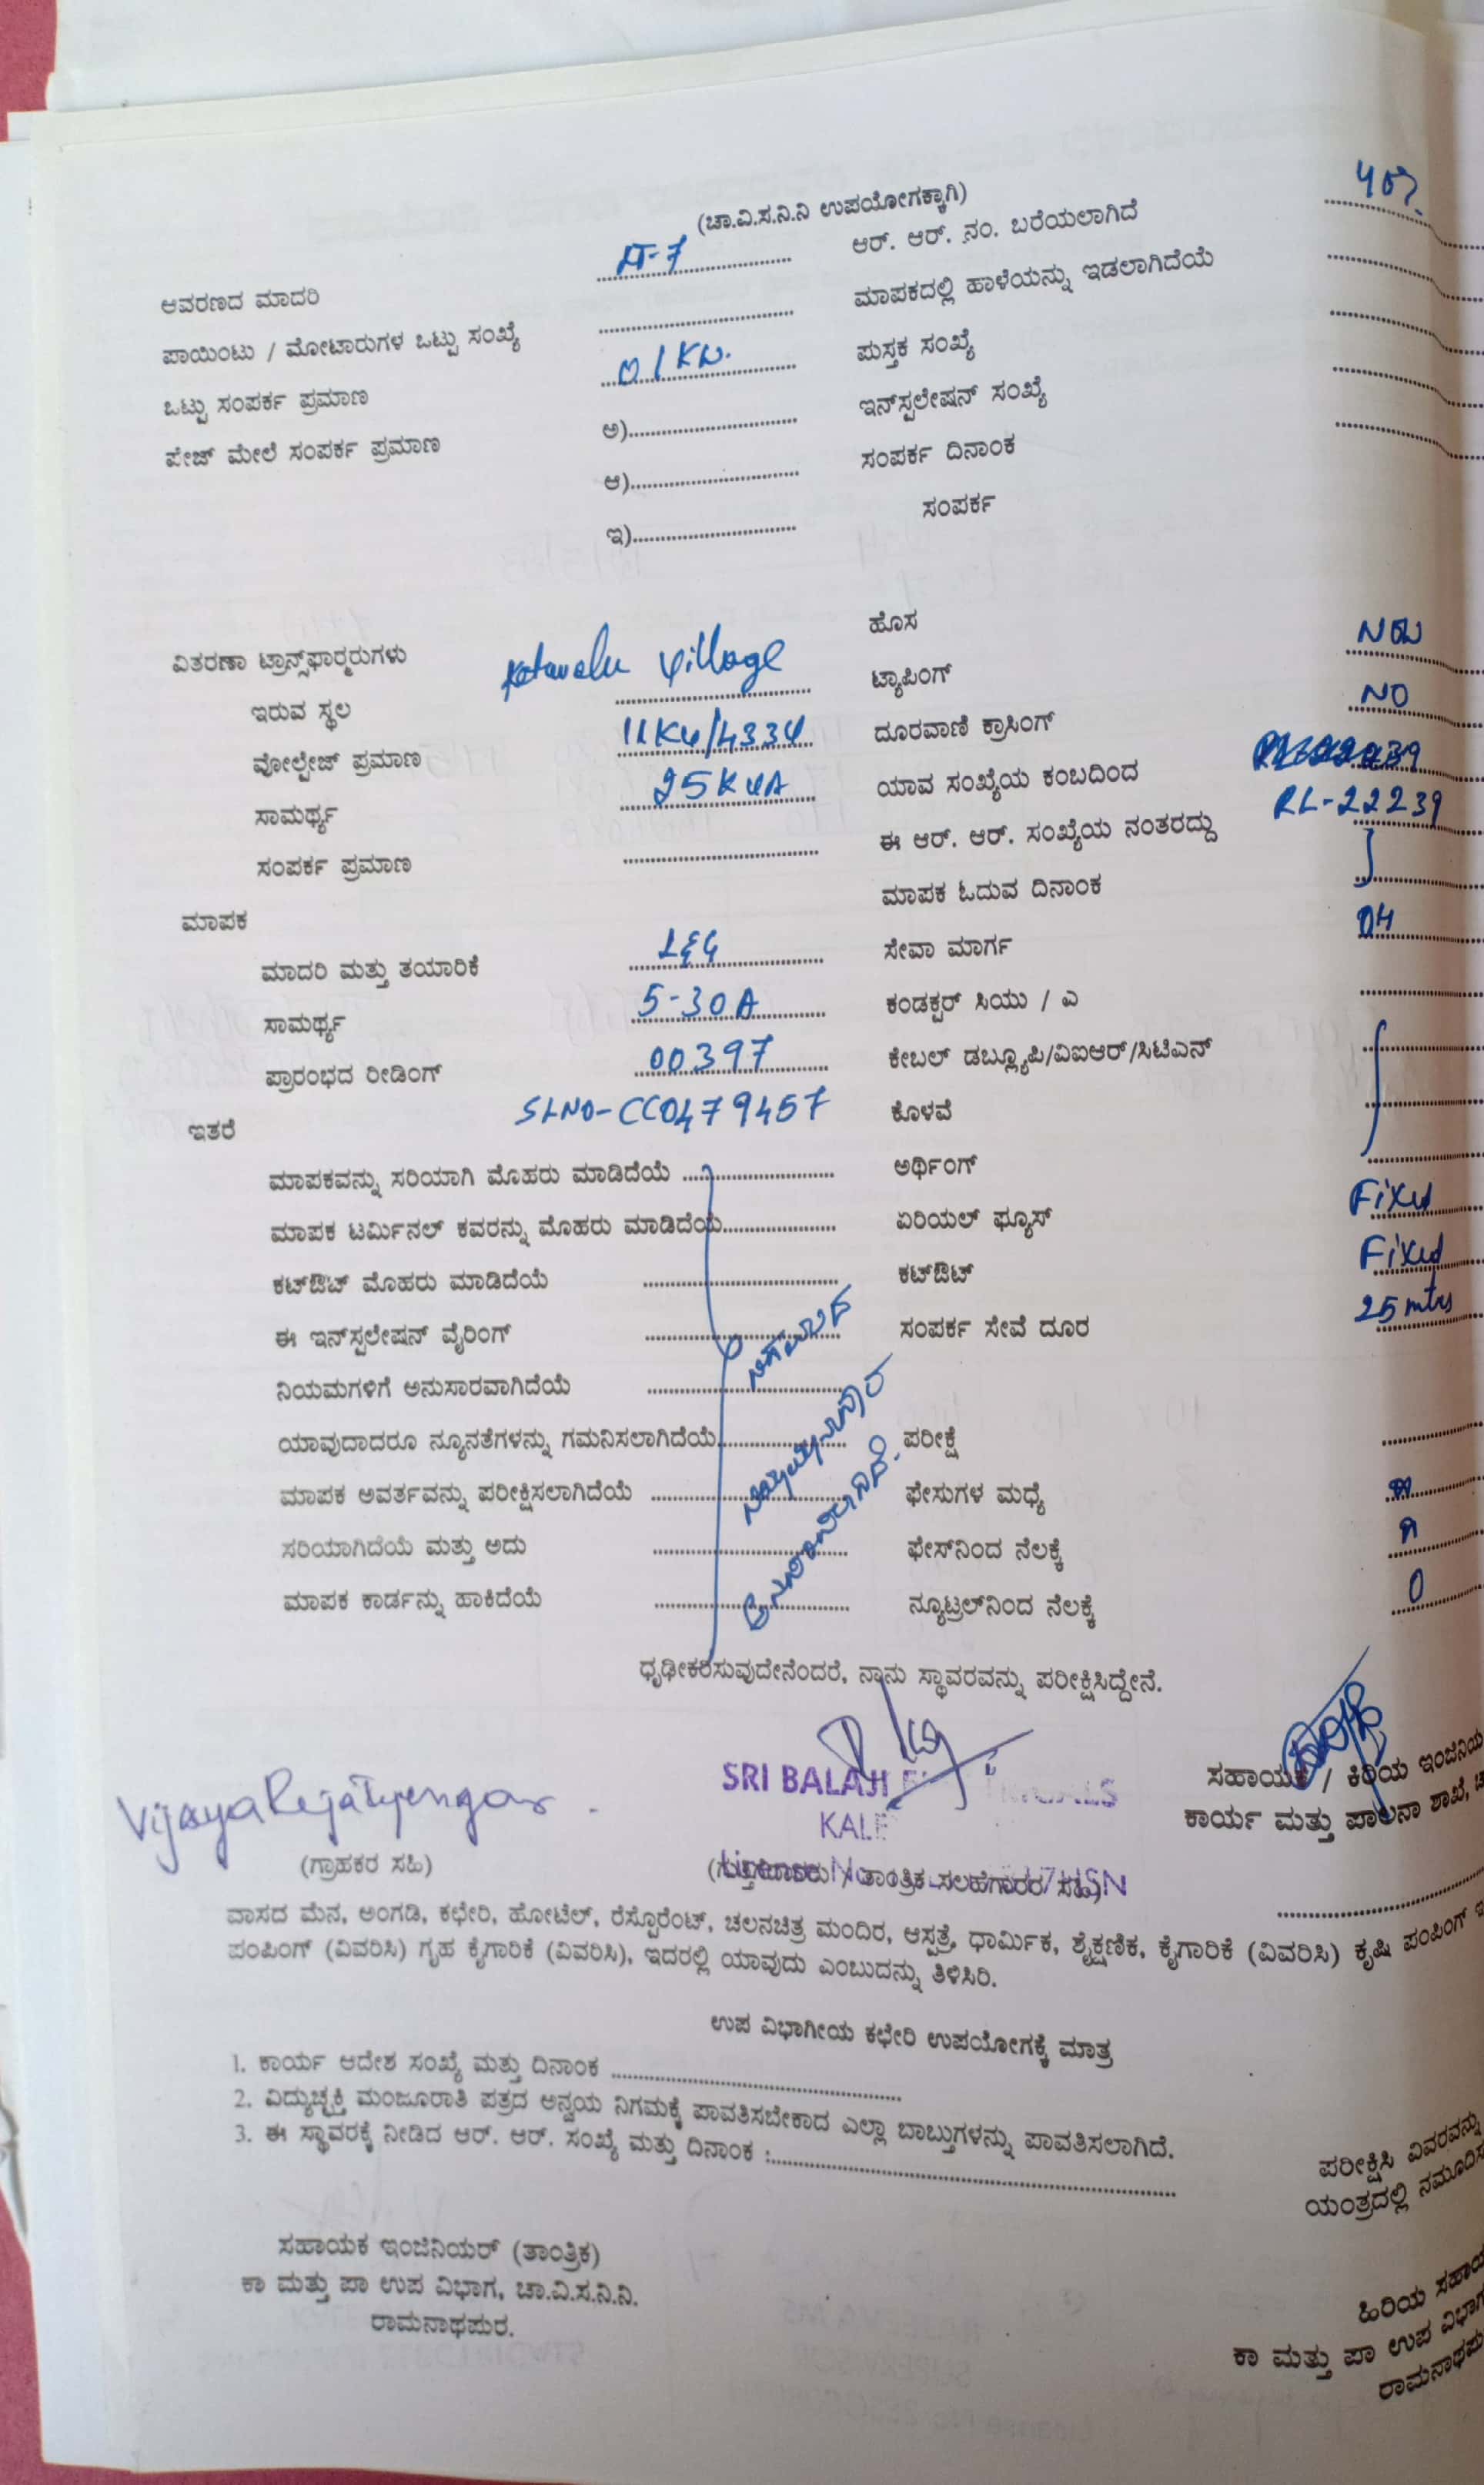 (ಚಾ.ವಿ.ಸ.ನಿ.ನಿ ಉಪಯೋಗಕ್ಕಾಗಿ)
ಆವರಣದ ಮಾದರಿ ............ ಆರ್. ಆರ್. ನಂ. ಬರೆಯಲಾಗಿದೆ
ಪಾಯಿಂಟು / ಮೋಟಾರುಗಳ ಒಟ್ಟು ಸಂಖ್ಯೆ ............ ಮಾಪಕದಲ್ಲಿ ಹಾಳೆಯನ್ನು ಇಡಲಾಗಿದೆಯೆ ............
ಒಟ್ಟು ಸಂಪರ್ಕ ಪ್ರಮಾಣ 01KW. ಪುಸ್ತಕ ಸಂಖ್ಯೆ ............
ಪೇಜ್ ಮೇಲೆ ಸಂಪರ್ಕ ಪ್ರಮಾಣ ಅ)............ ಇನ್‌ಸ್ಟಲೇಷನ್ ಸಂಖ್ಯೆ ............
ಆ)............ ಸಂಪರ್ಕ ದಿನಾಂಕ ............
ಇ)............ ಸಂಪರ್ಕ
ವಿತರಣಾ ಟ್ರಾನ್ಸ್‌ಫಾರ್ಮರುಗಳು ಹೊಸ
ಇರುವ ಸ್ಥಲ village ಟ್ಯಾಪಿಂಗ್ NEW
ವೋಲ್ಟೇಜ್ ಪ್ರಮಾಣ 11KV/433V ದೂರವಾಣಿ ಕ್ರಾಸಿಂಗ್ NO
ಸಾಮರ್ಥ್ಯ 25KVA ಯಾವ ಸಂಖ್ಯೆಯ ಕಂಬದಿಂದ
ಸಂಪರ್ಕ ಪ್ರಮಾಣ ............ ಈ ಆರ್. ಆರ್. ಸಂಖ್ಯೆಯ ನಂತರದ್ದು RL-22239
ಮಾಪಕ ಮಾಪಕ ಓದುವ ದಿನಾಂಕ
ಮಾದರಿ ಮತ್ತು ತಯಾರಿಕೆ L&G ಸೇವಾ ಮಾರ್ಗ
ಸಾಮರ್ಥ್ಯ 5-30A ಕಂಡಕ್ಟರ್ ಸಿಯು / ಎ
ಪ್ರಾರಂಭದ ರೀಡಿಂಗ್ 00397 ಕೇಬಲ್ ಡಬ್ಲ್ಯೂಪಿ/ವಿಐಆರ್/ಸಿಟಿಎನ್
ಇತರೆ SLNO-CC0479457 ಕೊಳವೆ
ಮಾಪಕವನ್ನು ಸರಿಯಾಗಿ ಮೊಹರು ಮಾಡಿದೆಯೆ ............ ಅರ್ಥಿಂಗ್
ಮಾಪಕ ಟರ್ಮಿನಲ್ ಕವರನ್ನು ಮೊಹರು ಮಾಡಿದೆಯೆ............ ಏರಿಯಲ್ ಫ್ಯೂಸ್ Fixed
ಕಟ್‌ಔಟ್ ಮೊಹರು ಮಾಡಿದೆಯೆ ............ ಕಟ್‌ಔಟ್ Fixed
ಈ ಇನ್‌ಸ್ಟಲೇಷನ್ ವೈರಿಂಗ್ ............ ಸಂಪರ್ಕ ಸೇವೆ ದೂರ 25 mtrs
ನಿಯಮಗಳಿಗೆ ಅನುಸಾರವಾಗಿದೆಯೆ ............
ಯಾವುದಾದರೂ ನ್ಯೂನತೆಗಳನ್ನು ಗಮನಿಸಲಾಗಿದೆಯೆ............ ಪರೀಕ್ಷೆ
ಮಾಪಕ ಅವರ್ತವನ್ನು ಪರೀಕ್ಷಿಸಲಾಗಿದೆಯೆ ............ ಫೇಸುಗಳ ಮಧ್ಯೆ
ಸರಿಯಾಗಿದೆಯೆ ಮತ್ತು ಅದು ............ ಫೇಸ್‌ನಿಂದ ನೆಲಕ್ಕೆ
ಮಾಪಕ ಕಾರ್ಡನ್ನು ಹಾಕಿದೆಯೆ ............ ನ್ಯೂಟ್ರಲ್‌ನಿಂದ ನೆಲಕ್ಕೆ 0
ಧೃಢೀಕರಿಸುವುದೇನೆಂದರೆ, ನಾನು ಸ್ಥಾವರವನ್ನು ಪರೀಕ್ಷಿಸಿದ್ದೇನೆ.
SRI BALAJI
ಸಹಾಯಕ / ಕಿರಿಯ
ಕಾರ್ಯ ಮತ್ತು ಪಾಲನಾ ಶಾಖೆ,
(ಗ್ರಾಹಕರ ಸಹಿ) ತಾಂತ್ರಿಕ ಸಲಹೆಗಾರರ ಸಹಿ)
ವಾಸದ ಮೆನ, ಅಂಗಡಿ, ಕಛೇರಿ, ಹೋಟೆಲ್, ರೆಸ್ಟೊರೆಂಟ್, ಚಲನಚಿತ್ರ ಮಂದಿರ, ಆಸ್ಪತ್ರೆ, ಧಾರ್ಮಿಕ, ಶೈಕ್ಷಣಿಕ, ಕೈಗಾರಿಕೆ (ವಿವರಿಸಿ) ಕೃಷಿ ಪಂಪಿಂಗ್
ಪಂಪಿಂಗ್ (ವಿವರಿಸಿ) ಗೃಹ ಕೈಗಾರಿಕೆ (ವಿವರಿಸಿ), ಇದರಲ್ಲಿ ಯಾವುದು ಎಂಬುದನ್ನು ತಿಳಿಸಿರಿ.
ಉಪ ವಿಭಾಗೀಯ ಕಛೇರಿ ಉಪಯೋಗಕ್ಕೆ ಮಾತ್ರ
1. ಕಾರ್ಯ ಆದೇಶ ಸಂಖ್ಯೆ ಮತ್ತು ದಿನಾಂಕ ............
2. ವಿದ್ಯುಚ್ಛಕ್ತಿ ಮಂಜೂರಾತಿ ಪತ್ರದ ಅನ್ವಯ ನಿಗಮಕ್ಕೆ ಪಾವತಿಸಬೇಕಾದ ಎಲ್ಲಾ ಬಾಬ್ತುಗಳನ್ನು ಪಾವತಿಸಲಾಗಿದೆ.
3. ಈ ಸ್ಥಾವರಕ್ಕೆ ನೀಡಿದ ಆರ್. ಆರ್. ಸಂಖ್ಯೆ ಮತ್ತು ದಿನಾಂಕ :............
ಪರೀಕ್ಷಿಸಿ ವಿವರವನ್ನು
ಯಂತ್ರದಲ್ಲಿ
ಸಹಾಯಕ ಇಂಜಿನಿಯರ್ (ತಾಂತ್ರಿಕ)
ಕಾ ಮತ್ತು ಪಾ ಉಪ ವಿಭಾಗ, ಚಾ.ವಿ.ಸ.ನಿ.ನಿ.
ರಾಮನಾಥಪುರ.
ಹಿರಿಯ
ಕಾ ಮತ್ತು ಪಾ ಉಪ